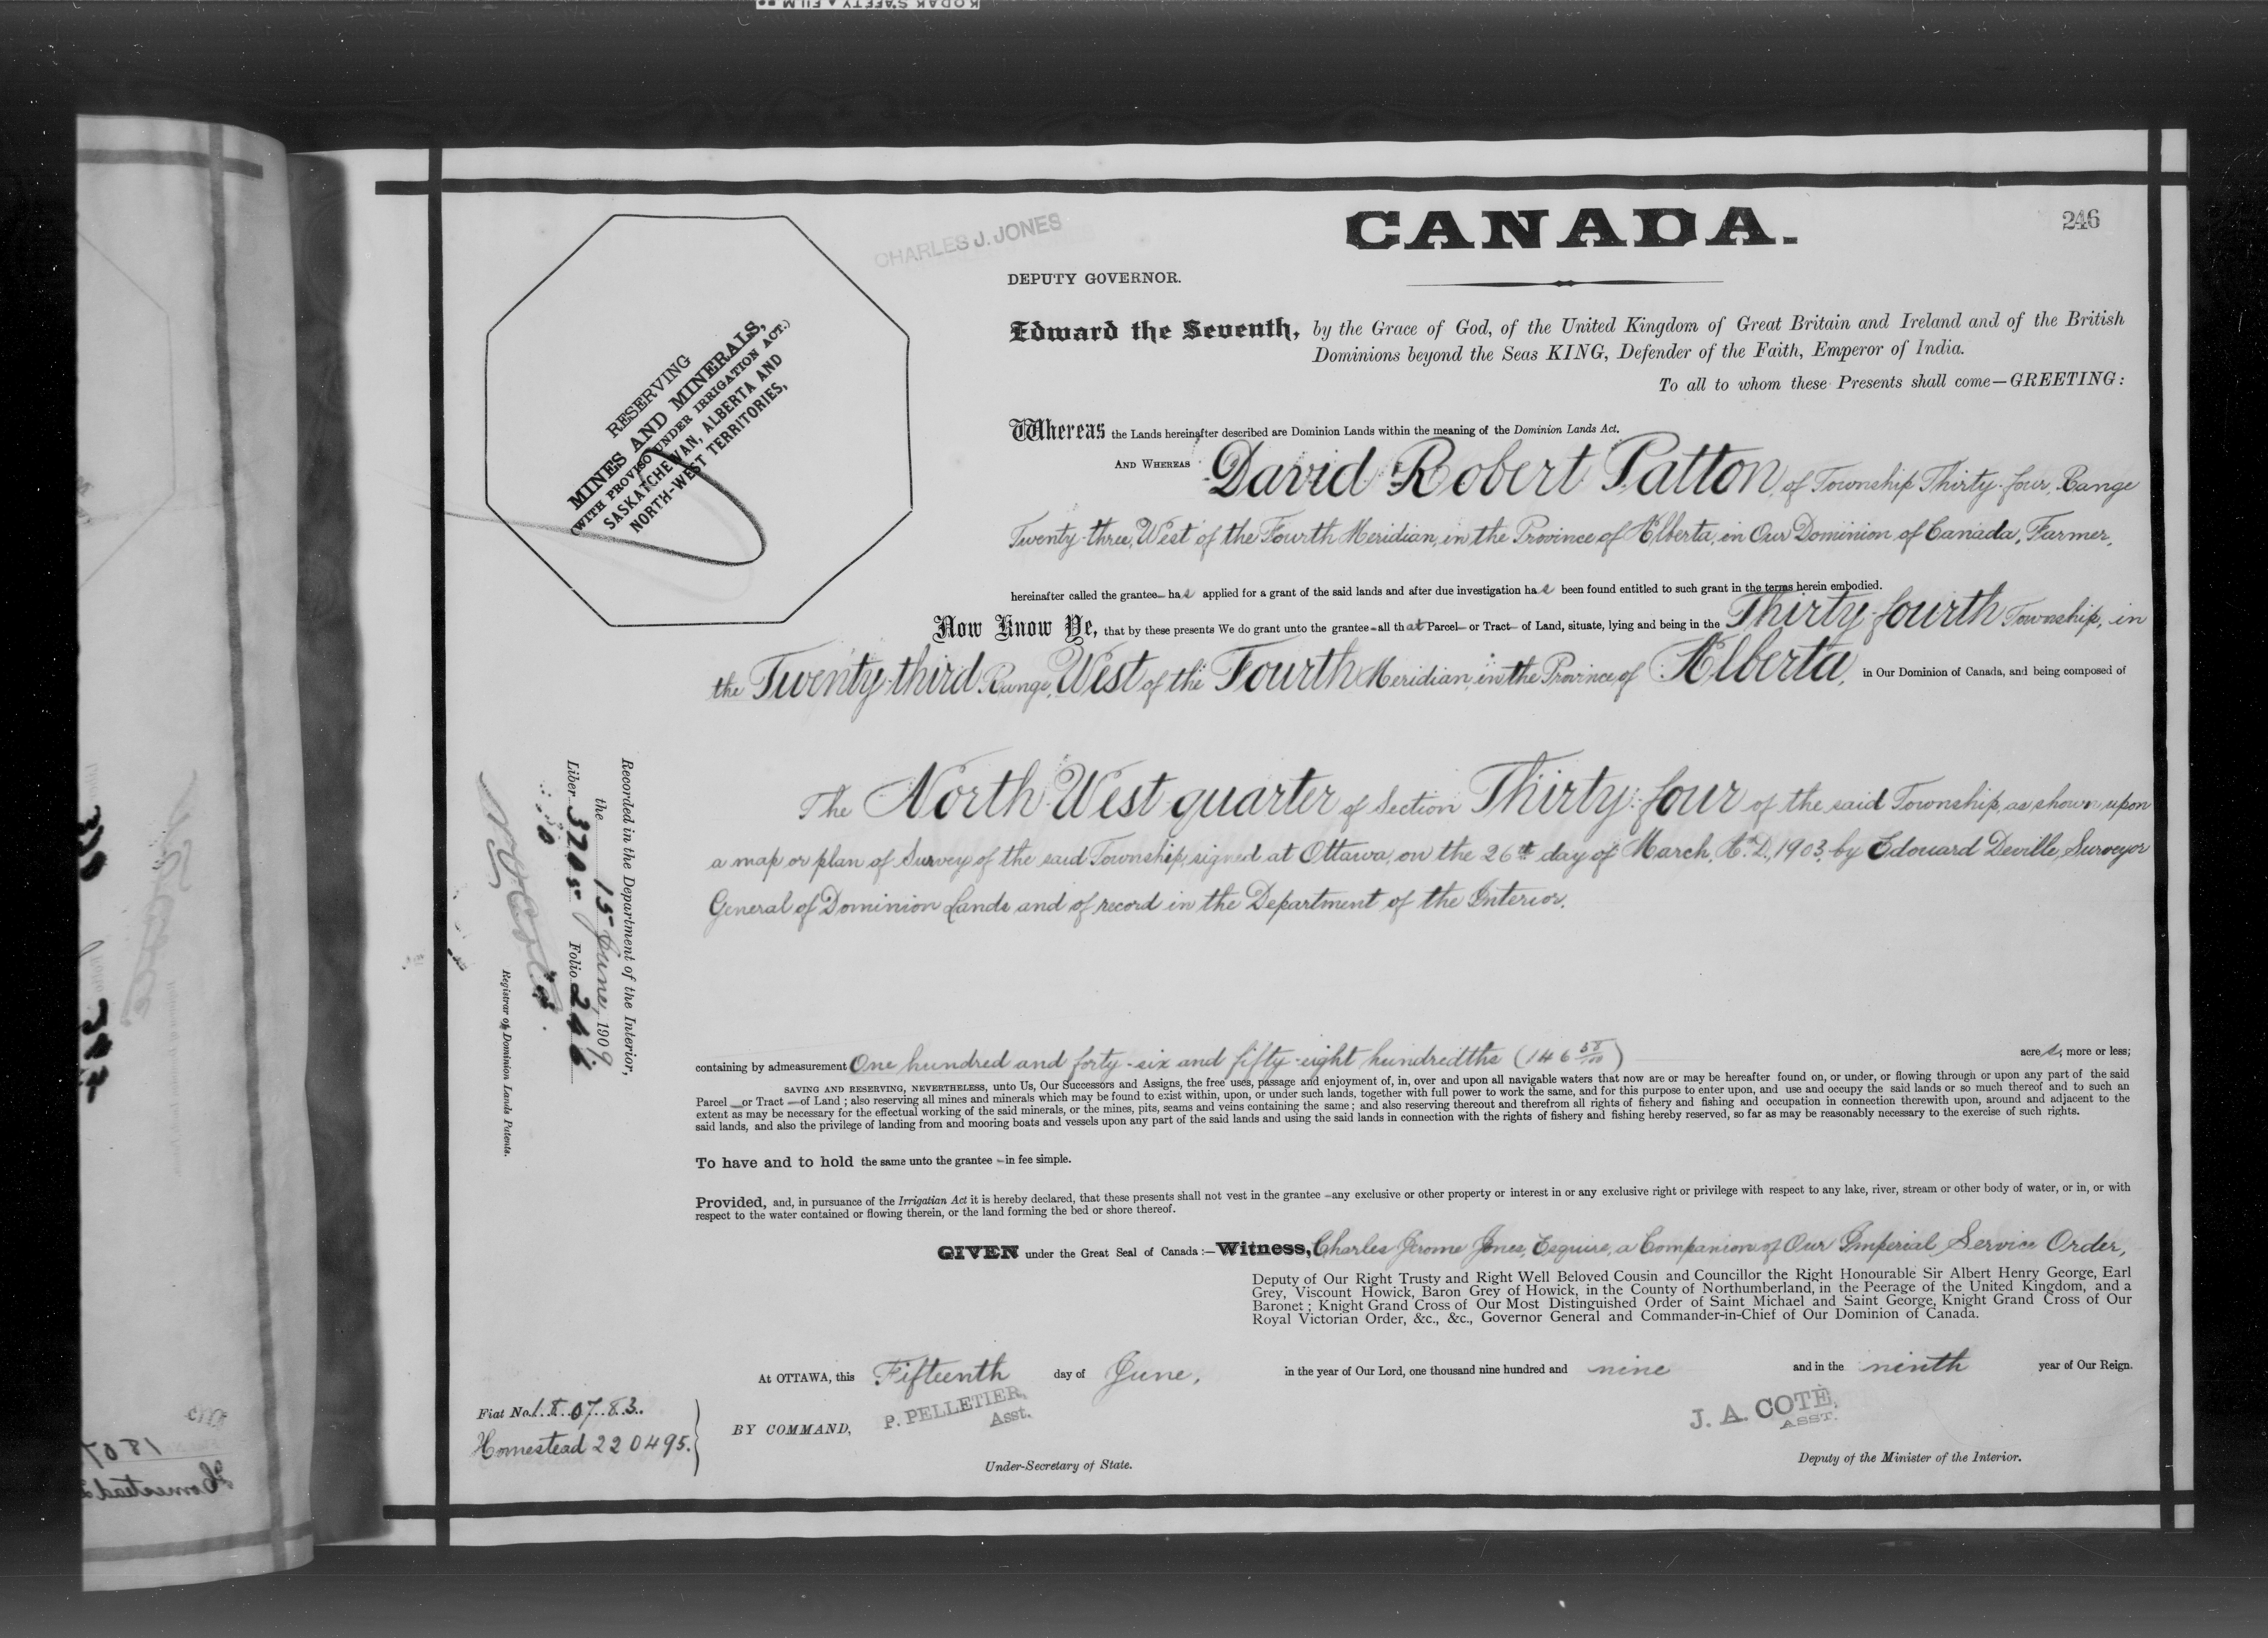 KODAK SAFETY FILM
CANADA.
246
CHARLES J. JONES
DEPUTY GOVERNOR.
RESERVING
MINES AND MINERALS,
(WITH PROVISO UNDER IRRIGATION ACT.)
SASKATCHEWAN, ALBERTA AND
NORTH-WEST TERRITORIES,
Edward the Seventh, by the Grace of God, of the United Kingdom of Great Britain and Ireland and of the British
Dominions beyond the Seas KING, Defender of the Faith, Emperor of India.
To all to whom these Presents shall come—GREETING:
Whereas the Lands hereinafter described are Dominion Lands within the meaning of the Dominion Lands Act.
AND WHEREAS David Robert Patton, of Township Thirty-four, Range
Twenty-three, West of the Fourth Meridian, in the Province of Alberta, in Our Dominion of Canada, Farmer,
hereinafter called the grantee— has applied for a grant of the said lands and after due investigation has been found entitled to such grant in the terms herein embodied.
Now Know Ye, that by these presents We do grant unto the grantee—all that Parcel— or Tract— of Land, situate, lying and being in the Thirty-fourth Township, in
the Twenty-third Range, West of the Fourth Meridian, in the Province of Alberta, in Our Dominion of Canada, and being composed of
The North West quarter of Section Thirty-four of the said Township, as shown upon
a map or plan of Survey of the said Township, signed at Ottawa, on the 26th day of March, A.D., 1903, by Edouard Deville, Surveyor
General of Dominion Lands and of record in the Department of the Interior.
Recorded in the Department of the Interior,
the 15 June, 1909
Liber 320 Folio 246
Registrar of Dominion Lands Patents.
containing by admeasurement One hundred and forty-six and fifty-eight hundredths (146 58/100) acres, more or less;
SAVING AND RESERVING, NEVERTHELESS, unto Us, Our Successors and Assigns, the free uses, passage and enjoyment of, in, over and upon all navigable waters that now are or may be hereafter found on, or under, or flowing through or upon any part of the said
Parcel —or Tract —of Land ; also reserving all mines and minerals which may be found to exist within, upon, or under such lands, together with full power to work the same, and for this purpose to enter upon, and use and occupy the said lands or so much thereof and to such an
extent as may be necessary for the effectual working of the said minerals, or the mines, pits, seams and veins containing the same ; and also reserving thereout and therefrom all rights of fishery and fishing and occupation in connection therewith upon, around and adjacent to the
said lands, and also the privilege of landing from and mooring boats and vessels upon any part of the said lands and using the said lands in connection with the rights of fishery and fishing hereby reserved, so far as may be reasonably necessary to the exercise of such rights.
To have and to hold the same unto the grantee —in fee simple.
Provided, and, in pursuance of the Irrigatian Act it is hereby declared, that these presents shall not vest in the grantee —any exclusive or other property or interest in or any exclusive right or privilege with respect to any lake, river, stream or other body of water, or in, or with
respect to the water contained or flowing therein, or the land forming the bed or shore thereof.
GIVEN under the Great Seal of Canada :—Witness, Charles Jerome Jones, Esquire, a Companion of Our Imperial Service Order,
Deputy of Our Right Trusty and Right Well Beloved Cousin and Councillor the Right Honourable Sir Albert Henry George, Earl
Grey, Viscount Howick, Baron Grey of Howick, in the County of Northumberland, in the Peerage of the United Kingdom, and a
Baronet ; Knight Grand Cross of Our Most Distinguished Order of Saint Michael and Saint George, Knight Grand Cross of Our
Royal Victorian Order, &c., &c., Governor General and Commander-in-Chief of Our Dominion of Canada.
At OTTAWA, this Fifteenth day of June, in the year of Our Lord, one thousand nine hundred and nine and in the ninth year of Our Reign.
Fiat No. 180783.
Homestead 220495.
BY COMMAND,
P. PELLETIER,
Asst.
Under-Secretary of State.
J. A. COTÉ,
ASST.
Deputy of the Minister of the Interior.